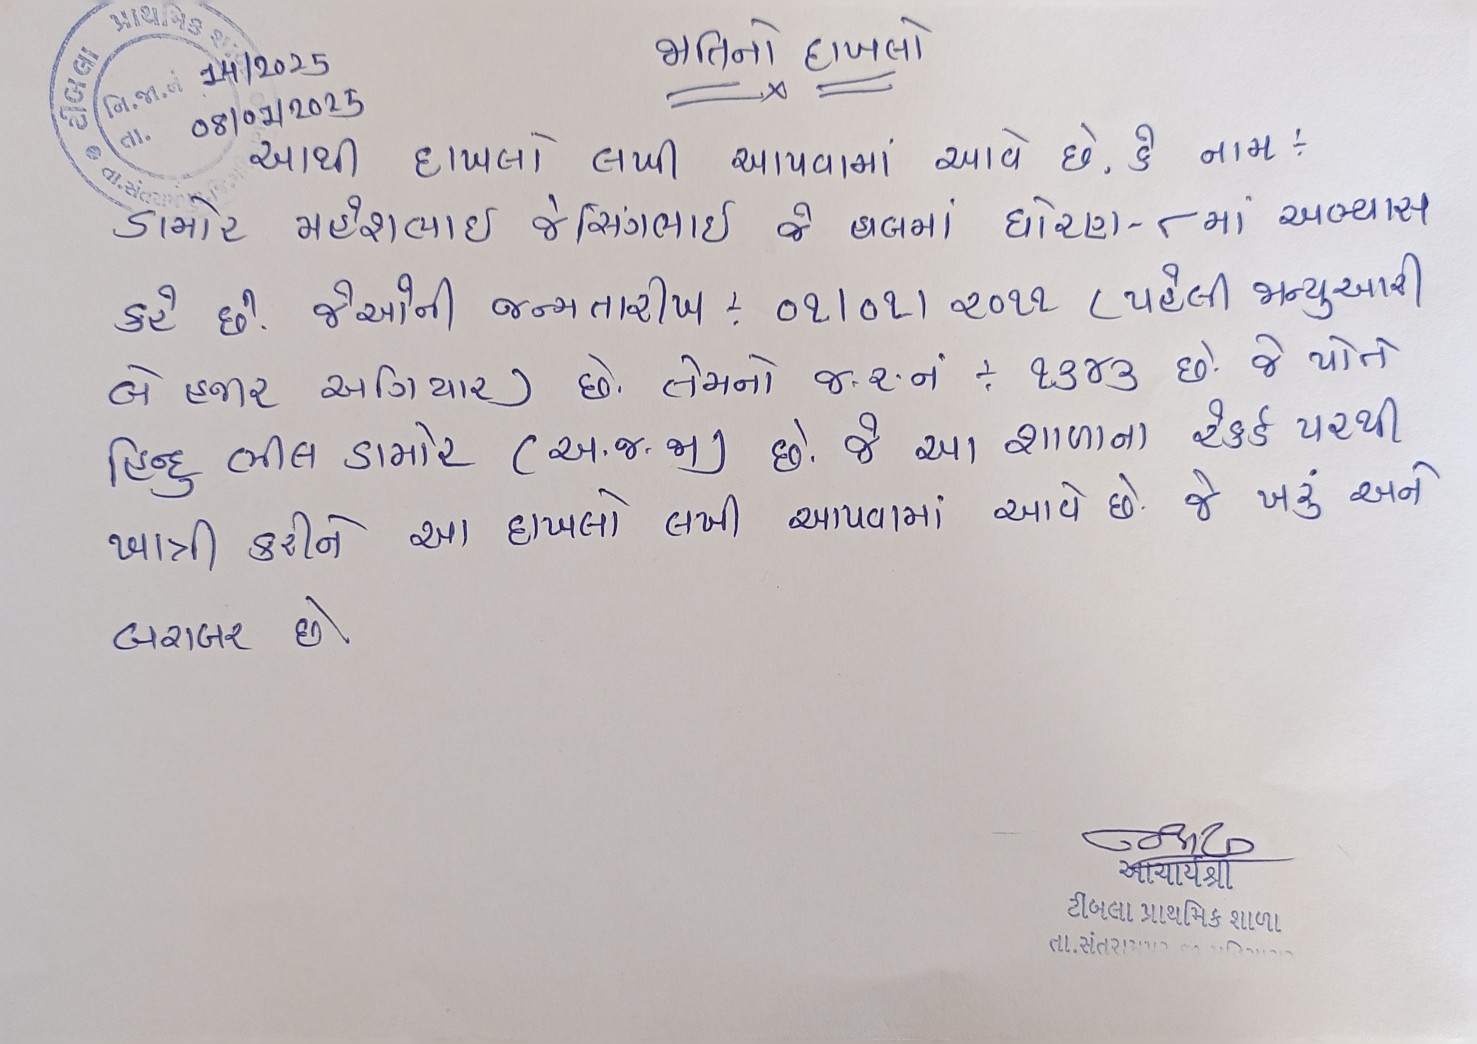 ટીબલા પ્રાથમિક
નિ.જા.નં 14/2025
તા. 08/01/2025
તા.સંતરામ
જાતિનો દાખલો
આથી દાખલો લખી આપવામાં આવે છે. કે નામ ÷
ડામોર મહેશભાઇ જેસિંગભાઇ જે હાલમાં ધોરણ-૮માં અભ્યાસ
કરે છે. જેઓની જન્મતારીખ ÷ ૦૧/૦૧/૨૦૧૧ (પહેલી જાન્યુઆરી
બે હજાર અગિયાર) છે. તેમનો જ.ર.નં ÷ ૧૩૪૩ છે. જે પોતે
હિન્દુ ભીલ ડામોર (અ.જ.જા) છે. જે આ શાળાના રેકર્ડ પરથી
ખાત્રી કરીને આ દાખલો લખી આપવામાં આવે છે. જે ખરું અને
બરાબર છે.
આચાર્યશ્રી
ટીબલા પ્રાથમિક શાળા
તા.સંતરામપુર